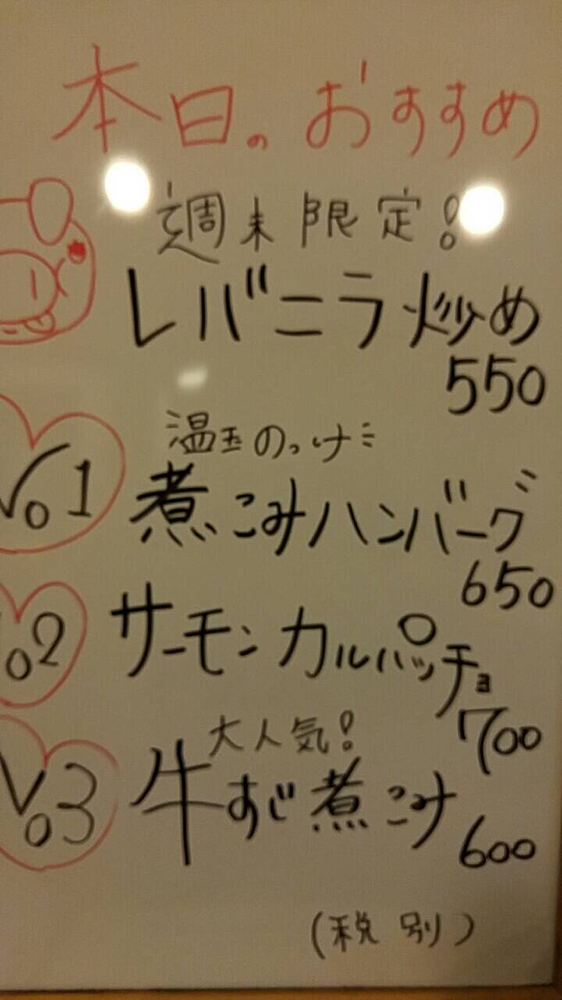 本日のおすすめ
週末限定!
レバニラ炒め
550
温玉のっけ
No1 煮こみハンバーグ
650
No2 サーモンカルパッチョ
700
大人気!
No3 牛すじ煮こみ
600
(税別)